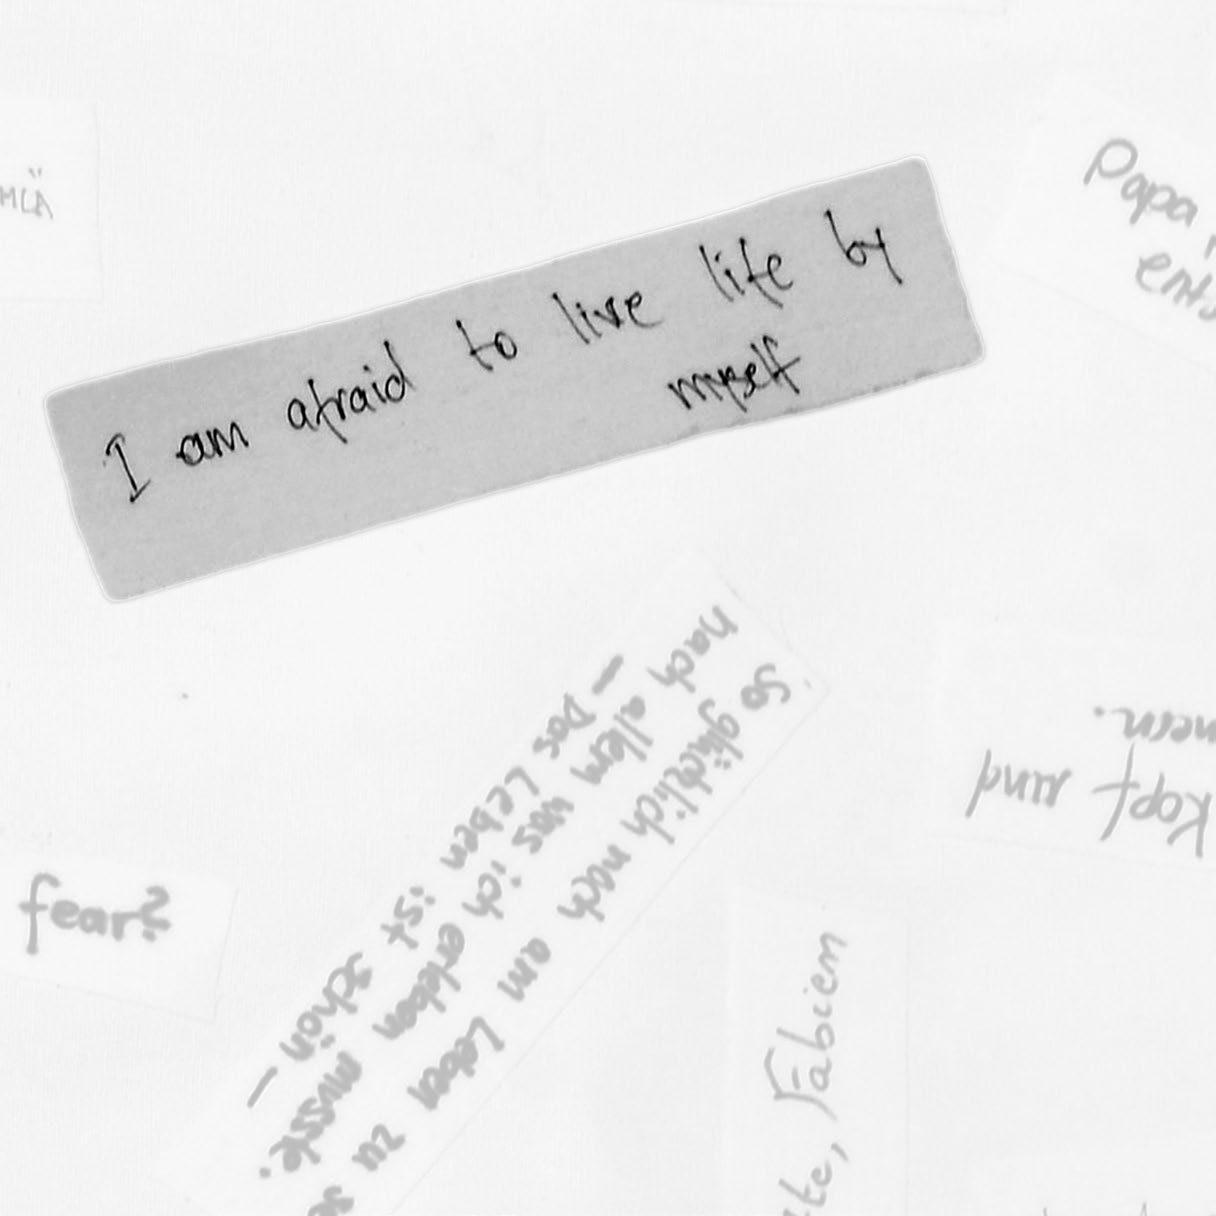 I am afraid to live life by
myself
MLÄ
Papa,
fear?
So glücklich nach am Leben zu
nach allem was ich erleben musste.
– Das Leben ist schön –
Kopf und
Fabien